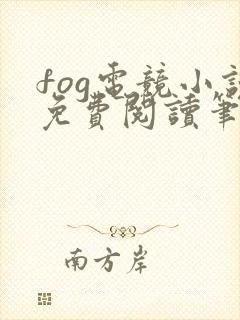 fog電競小說
免費閱讀筆
南方岸